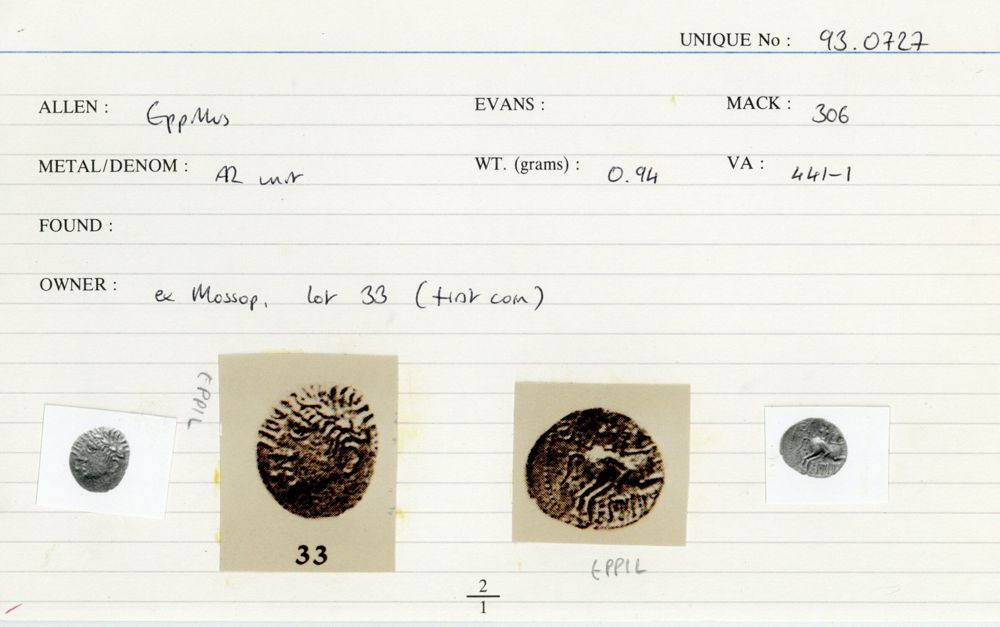 UNIQUE No : 93.0727
ALLEN : Eppillus EVANS : MACK : 306
METAL/DENOM : AR unit WT. (grams) : 0.94 VA : 441-1
FOUND :
OWNER : ex Mossop, lot 33 (first coin)
EPPIL
33
EPPIL
2
1